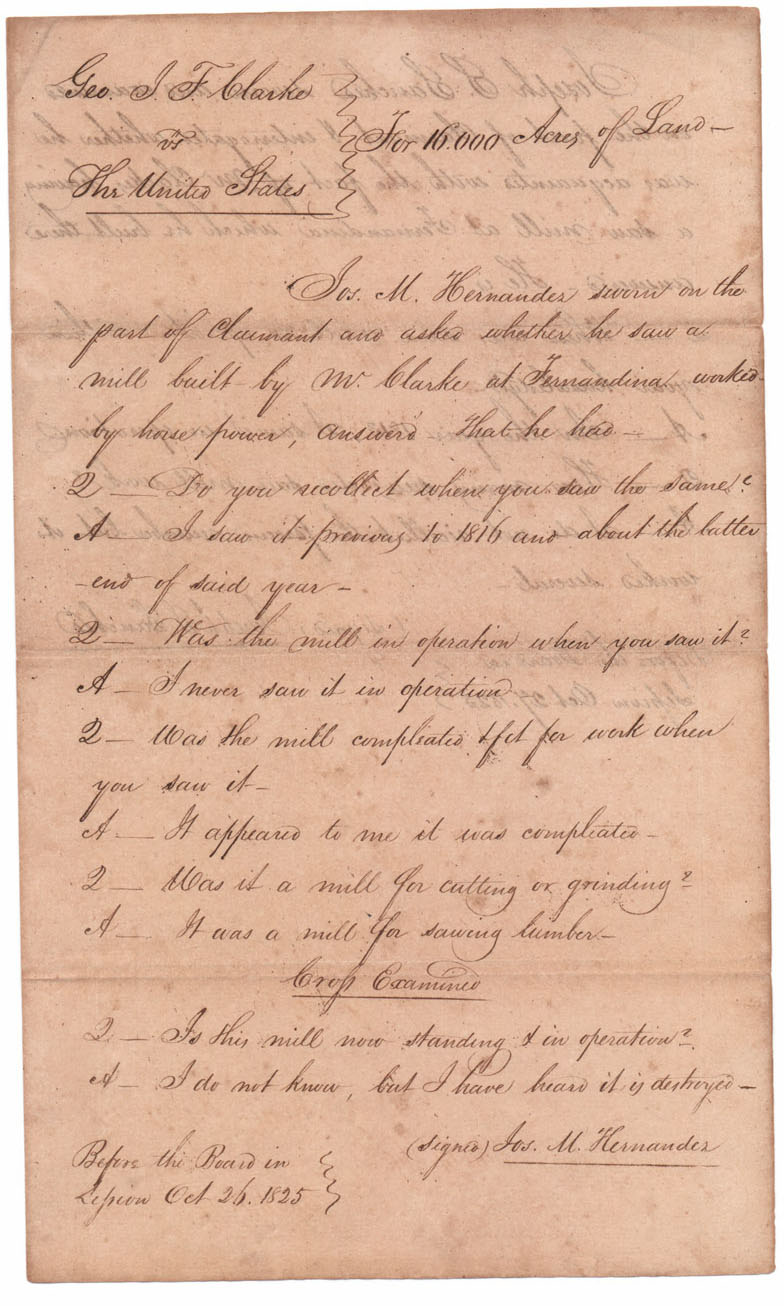 Geo. J. F. Clarke
vs
The United States
For 16.000 Acres of Land —
Jos. M. Hernandez sworn on the
part of Claimant and asked whether he saw a
mill built by Mr. Clarke at Fernandina worked
by horse power, answerd that he had —
Q — Do you recollect when you saw the same?
A — I saw it previous to 1816 and about the latter
end of said year —
Q — Was the mill in operation when you saw it?
A — I never saw it in operation
Q — Was the mill compleated & fit for work when
you saw it —
A — It appeared to me it was compleated —
Q — Was it a mill for cutting or grinding?
A — It was a mill for sawing lumber —
Cross Examined
Q — Is this mill now standing & in operation?
A — I do not know, but I have heard it is destroyed —
(signed) Jos. M. Hernandez
Before the Board in
Session Oct 26. 1825